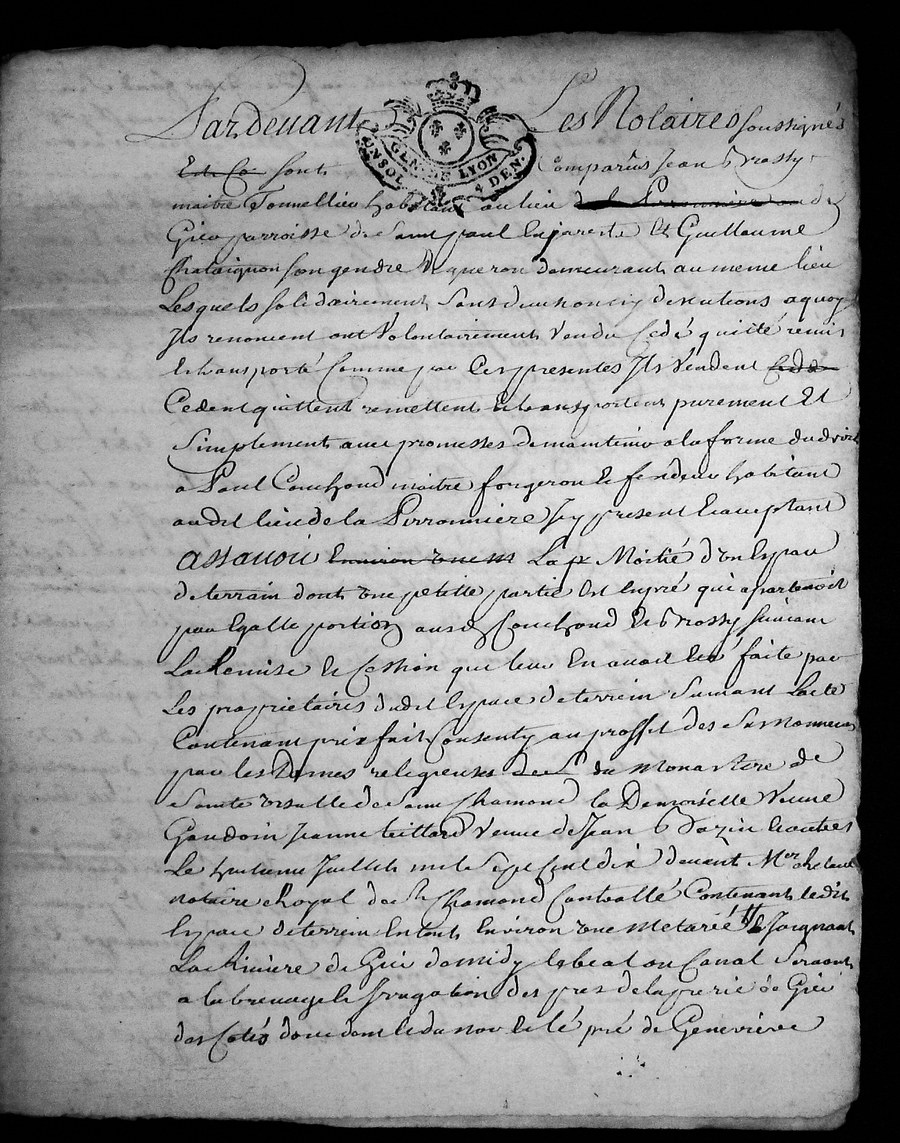 Pardevant Les Notaires soussignés
GEN. DE LYON
UN SOL. 4 DEN.
Et Co sont Comparus Jean Brossy
maitre Tonnellier habitant au lieu de la Perronniere de
Giea parroisse de Saint paul En jarest Et Guillaume
Chataignon son gendre demeurant au meme lieu
Lesquels solidairement sans division ny discutions a quoy
Ils renoncent ont Volontairement Vendu Cedé quitté remis
Et transporté Comme par Ces presentes Ils Vendent Cede
Cedent quittent remettent Et transportent purement Et
Simplement avec promesses de maintenir a la forme du droit
a Paul Couchoud maitre forgeron Et fendeur habitant
audit lieu de la Perronniere Icy present Et aceptant
assavoir Environ une m La Moitié d'un Espace
de terrain dont une petitte partie Est En pré qui apartenoit
par Egalle portion auxd Couchoud Et Brossy suivant
La Remise Et Cession que leur En avoit Eté faite par
Les proprietaires dudit Espace de terrein suivant L'acte
Contenant prix fait Consenty au proffit des
par les Dames religieuses de du Monastere de
Sainte Ursulle de Saint Chamond la Demoiselle Veuve
Gaudoin Jeanne teillard Veuve de Jean Bazin Et autres
Le huitieme Juillet mil Sept Cent dix devant Mer
notaire Royal de St Chamond Controllé Contenant ledit
Espace de terrein En tout Environ une metarée Joignant
La Riviere de Giei de midy Le beal ou Canal Servant
a labreuvage Et Irrugation des pres de la prerie de Giei
des Cotés Et le pré de Geneviéve